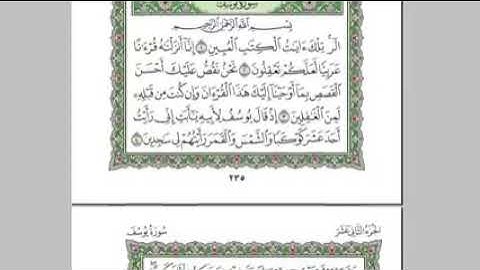 سورة يوسف
بِسْمِ اللَّهِ الرَّحْمَٰنِ الرَّحِيمِ
الٓر ۚ تِلْكَ ءَايَٰتُ ٱلْكِتَٰبِ ٱلْمُبِينِ ۝١ إِنَّآ أَنزَلْنَٰهُ قُرْءَٰنًا
عَرَبِيًّا لَّعَلَّكُمْ تَعْقِلُونَ ۝٢ نَحْنُ نَقُصُّ عَلَيْكَ أَحْسَنَ
ٱلْقَصَصِ بِمَآ أَوْحَيْنَآ إِلَيْكَ هَٰذَا ٱلْقُرْءَانَ وَإِن كُنتَ مِن قَبْلِهِۦ
لَمِنَ ٱلْغَٰفِلِينَ ۝٣ إِذْ قَالَ يُوسُفُ لِأَبِيهِ يَٰٓأَبَتِ إِنِّى رَأَيْتُ
أَحَدَ عَشَرَ كَوْكَبًا وَٱلشَّمْسَ وَٱلْقَمَرَ رَأَيْتُهُمْ لِى سَٰجِدِينَ ۝٤
٢٣٥
الجزء الثاني عشر
سورة يوسف